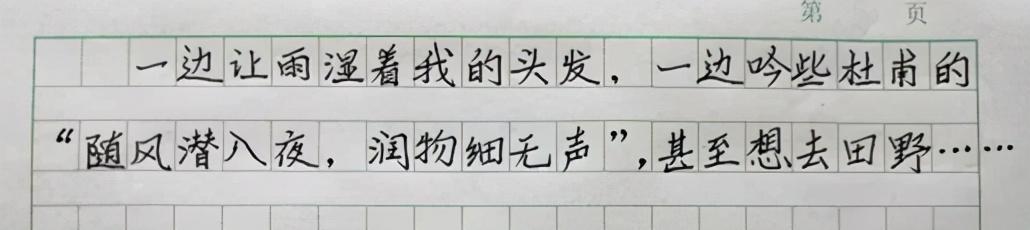 第 页
一边让雨湿着我的头发，一边吟些杜甫的
“随风潜入夜，润物细无声”，甚至想去田野……